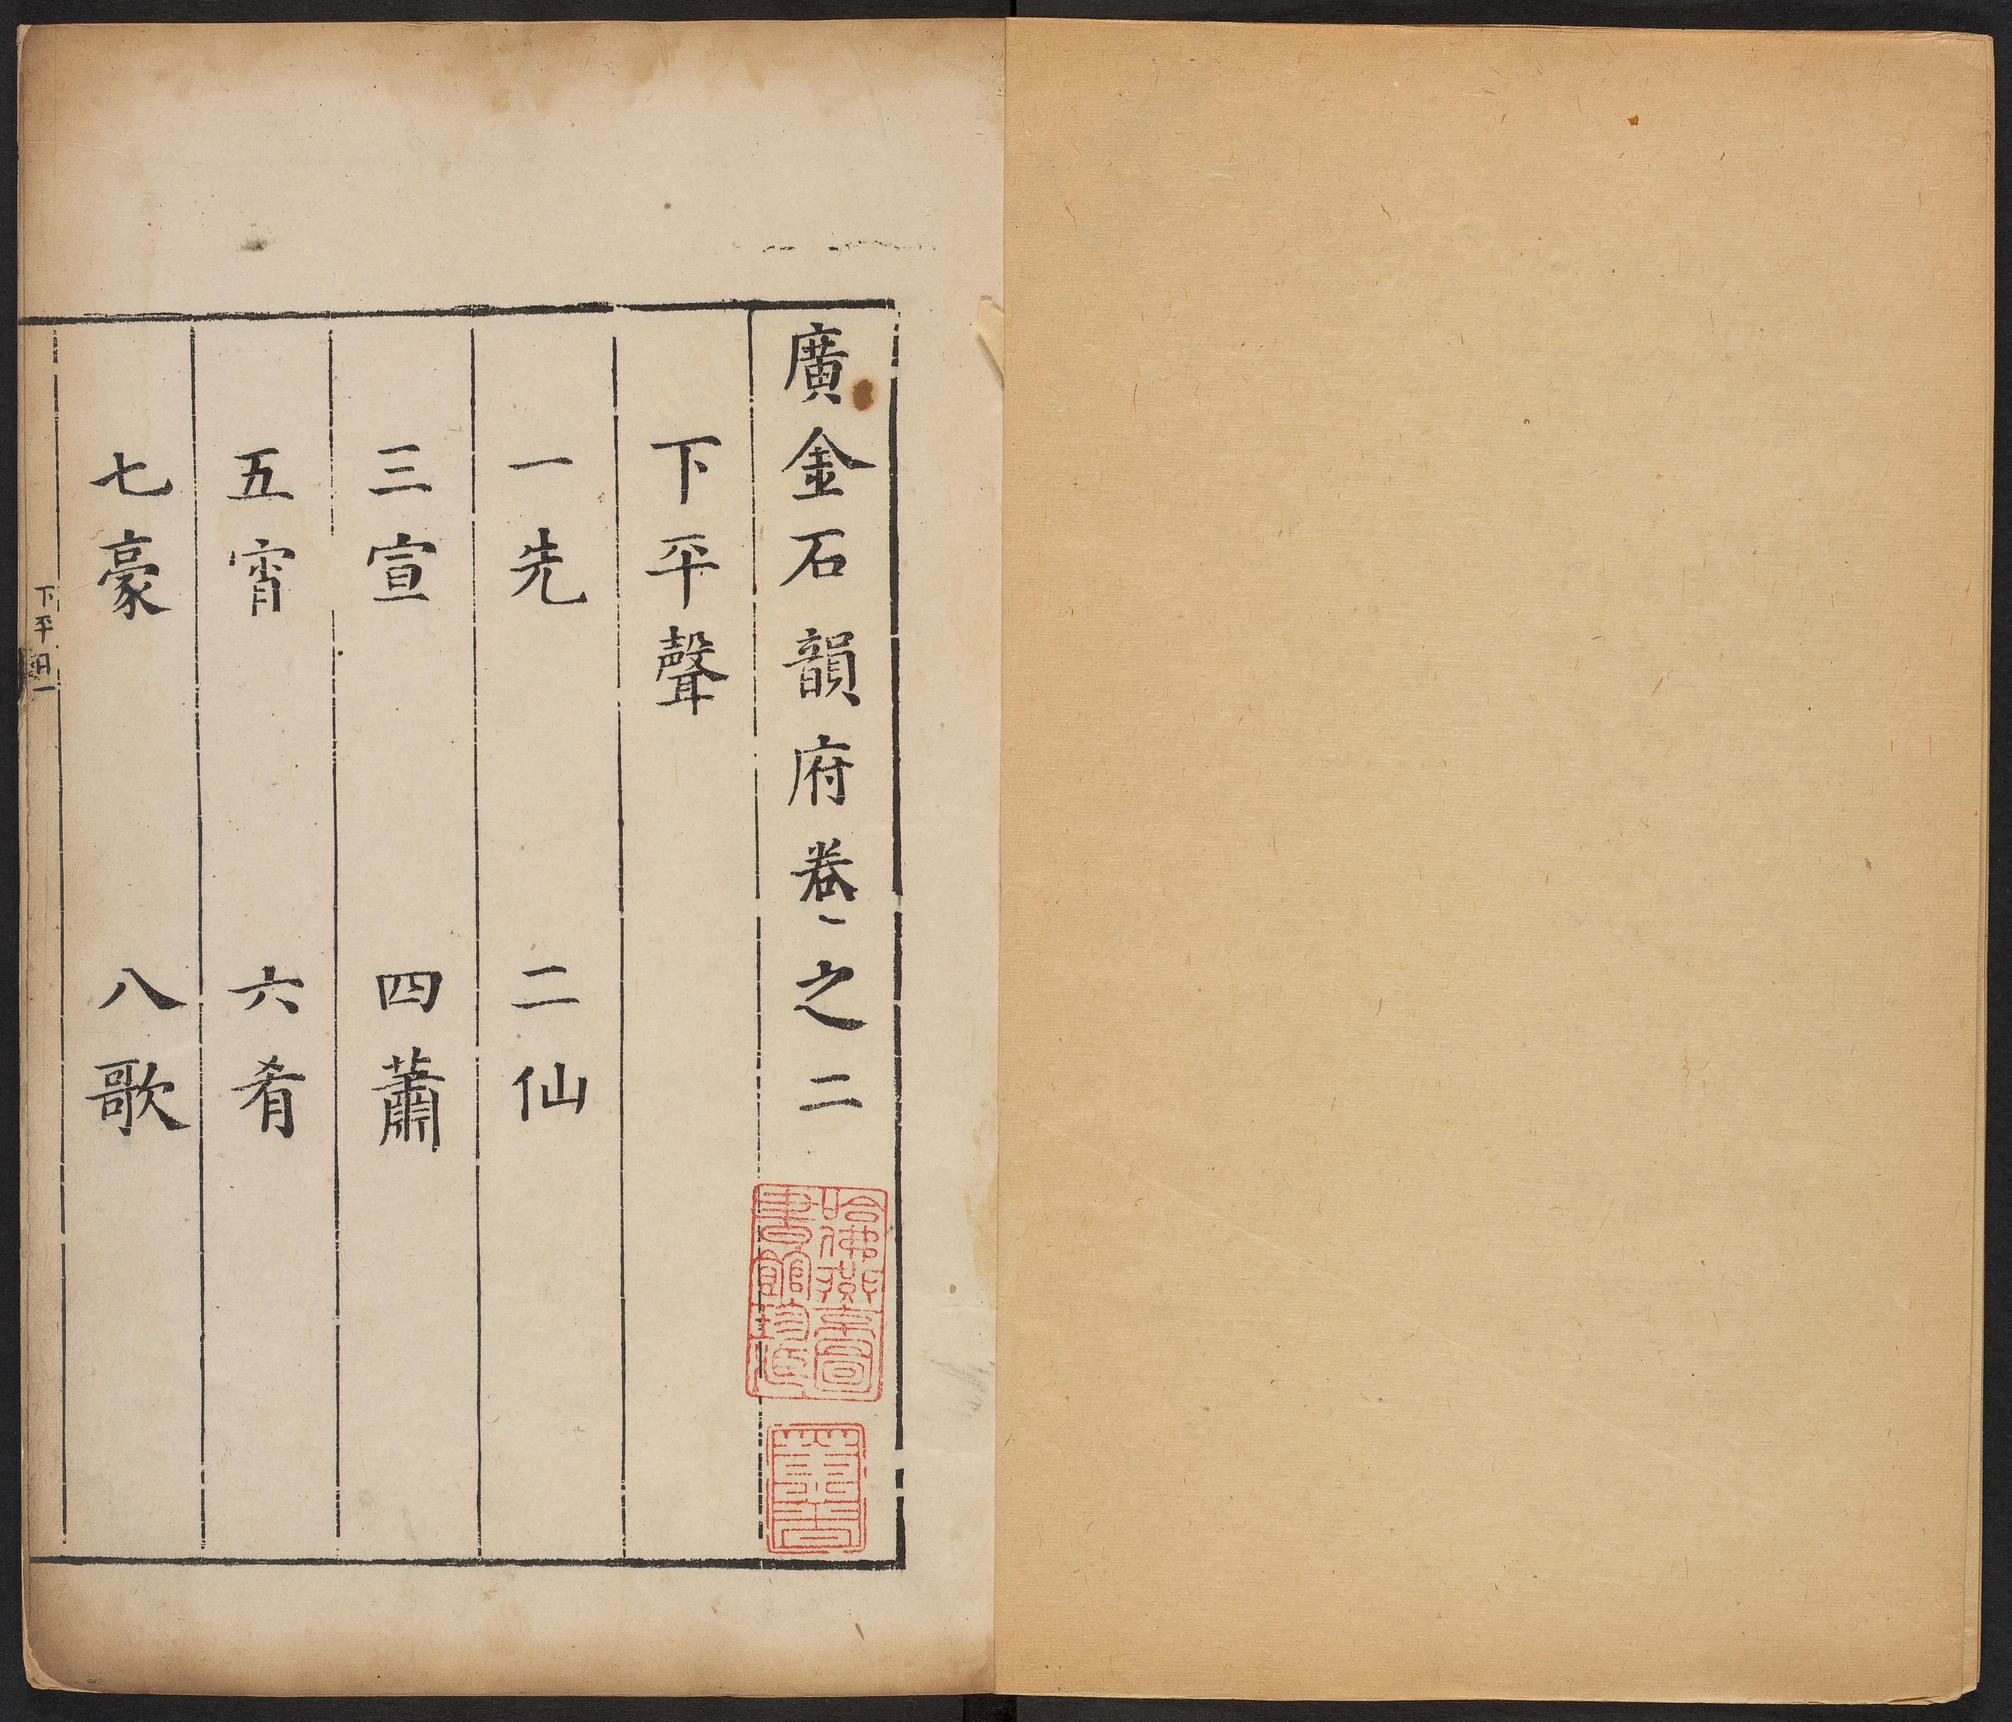 廣金石韻府卷之二
下平聲
一先　二仙
三宣　四蕭
五宵　六肴
七豪　八歌
下平目一
哈佛燕京圖
書館珍藏
善本